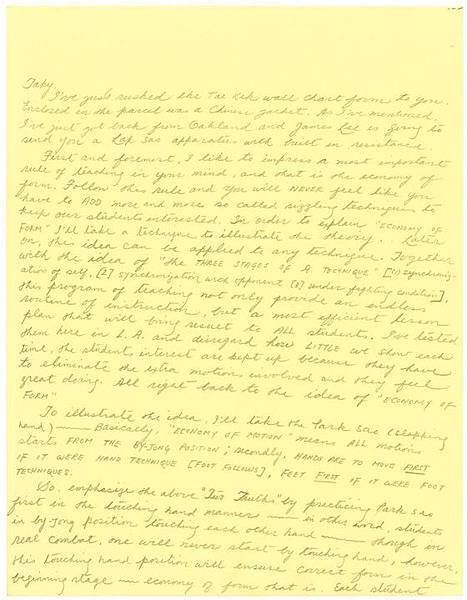 Taky,
I've just rushed the Tae Kek wall chart form to you.
Enclosed in the parcel was a Chinese jacket. As I've mentioned
I've just got back from Oakland and James Lee is going to
send you a Lop Sao apparatus with built in resistance.
First and foremost, I like to impress a most important
rule of teaching in your mind, and that is the economy of
form. Follow this rule and you will NEVER feel like you
have to ADD more and more so called sizzling techniques to
keep our students interested. In order to explain "ECONOMY OF
FORM" I'll take a technique to illustrate the theory. Later
on, this idea can be applied to any technique. Together
with the idea of "the THREE STAGES OF A TECHNIQUE" [(1) synchroniz-
ation of self, [2] synchronization with opponent [3] under fighting condition],
this program of teaching not only provide an endless
routine of instruction, but a most efficient lesson
plan that will bring result to ALL students. I've tested
them here in L.A. and disregard how LITTLE we show each
time, the students interest are kept up because they have
to eliminate the extra motions involved and they feel
great doing. All right back to the idea of "ECONOMY OF
FORM"
To illustrate the idea, I'll take the Park Sao (slapping
hand) — Basically, "ECONOMY OF MOTION" means ALL motions
starts FROM THE BY-JONG POSITION; secondly, HANDS ARE TO MOVE FIRST
IF IT WERE HAND TECHNIQUE [FOOT FOLLOWS], FEET FIRST IF IT WERE FOOT
TECHNIQUES.
So, emphasize the above "Two Truths" by practicing Park Sao
first in the touching hand manner — in other word, students
in by-jong position touching each other hand — though in
real combat, one will never start by touching hand, however,
this touching hand position will ensure correct form in the
beginning stage — economy of form that is. Each student